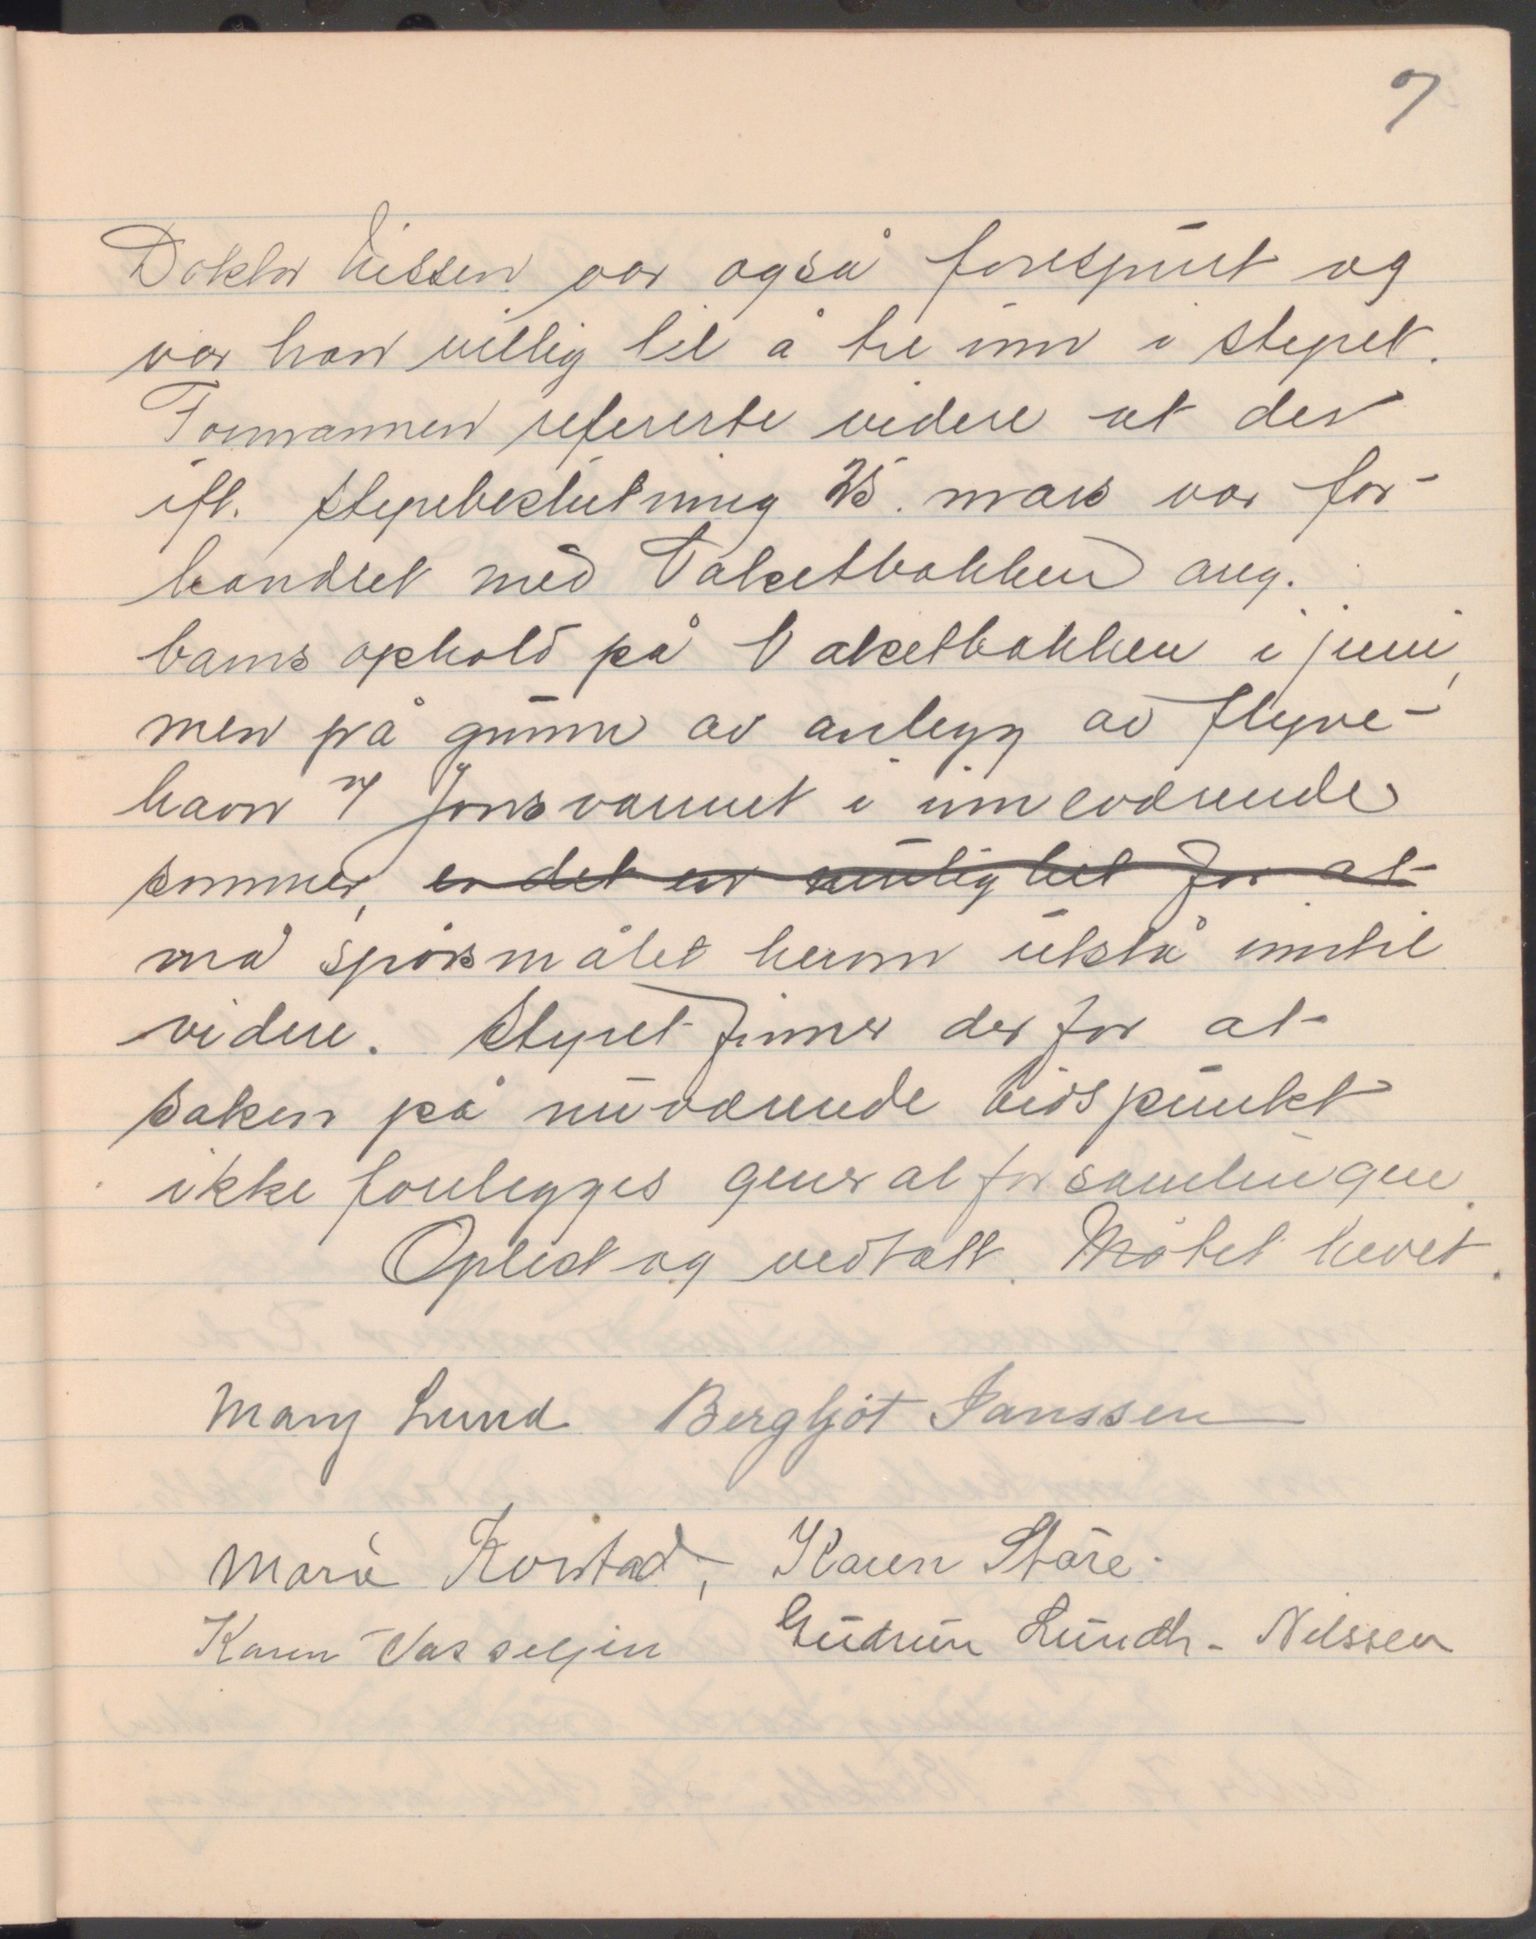 7
Doktor Nissen var også forespurt og
var han villig til å tre inn i styret.
Formannen refererte videre at der
ifl. styrebeslutning 25. mars var for-
handlet med Vaketbakken ang.
barns ophold på Vaketbakken i juni,
men på grunn av anlegg av flyve-
havn v/ Jonsvannet i inneværende
sommer, er det en umulighet for at
må spørsmålet herom utstå inntil
videre. Styret finner derfor at
saken på nuværende tidspunkt
ikke forelegges generalforsamlingen.
Oplest og vedtatt. Møtet hevet.
Mary Lund Bergljot Janssen
Marie Korstad, Karen Støre.
Karen Vasseljen Gudrun Lundh-Nilssen